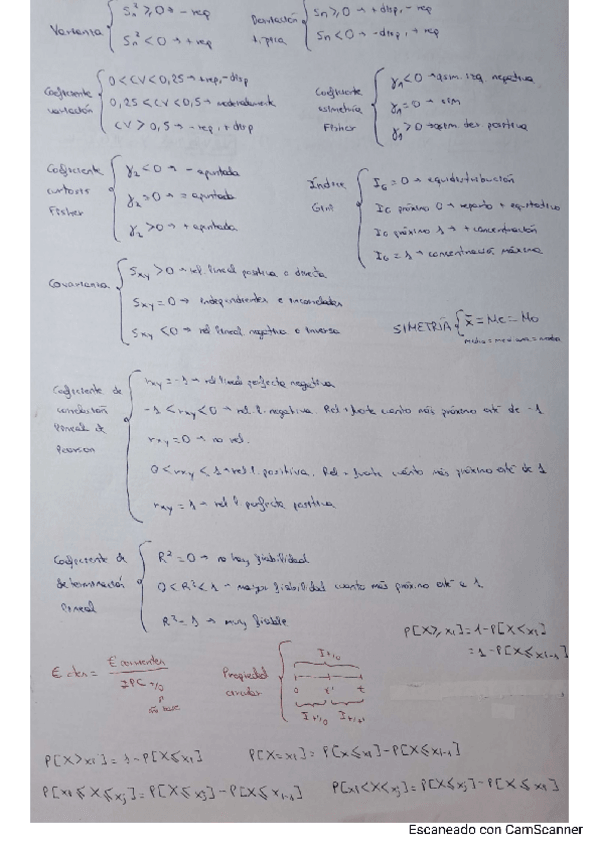 Varianza { Sn² ≥ 0 → - rep
Sn² < 0 → + rep
Desviación típica { Sn ≥ 0 → + disp, - rep
Sn < 0 → - disp, + rep
Coeficiente variación { 0 < CV < 0,25 → + rep, - disp
0,25 < CV < 0,5 → moderadamente
CV > 0,5 → - rep, + disp
Coeficiente asimetría Fisher { γ1 < 0 → asim. izq negativa
γ1 = 0 → sim
γ1 > 0 → asim. der positiva
Coeficiente curtosis Fisher { γ2 < 0 → - apuntada
γ2 = 0 → = apuntada
γ2 > 0 → + apuntada
Índice Gini { IG = 0 → equidistribución
IG próximo 0 → reparto + equitativo
IG próximo 1 → + concentración
IG = 1 → concentración máxima
Covarianza { Sxy > 0 → rel. lineal positiva o directa
Sxy = 0 → independientes e incorreladas
Sxy < 0 → rel lineal negativa o inversa
SIMETRÍA { x̄ = Me = Mo
media = mediana = moda
Coeficiente de correlación lineal de Pearson { rxy = -1 → rel lineal perfecta negativa
-1 < rxy < 0 → rel. l. negativa. Rel + fuerte cuanto más próximo esté de -1
rxy = 0 → no rel.
0 < rxy < 1 → rel l. positiva. Rel + fuerte cuánto más próximo esté de 1
rxy = 1 → rel l. perfecta positiva
Coeficiente de determinación lineal { R² = 0 → no hay fiabilidad
0 < R² < 1 → mayor fiabilidad cuanto más próximo esté a 1
R² = 1 → muy fiable
P[X ≥ xi] = 1 - P[X < xi]
= 1 - P[X ≤ xi-1]
€ ctes = € corrientes / IPC t/0
año base
Propiedad circular { I t/0
0 t' t
I t'/0 I t/t'
P[X > xi] = 1 - P[X ≤ xi]
P[X = xi] = P[X ≤ xi] - P[X ≤ xi-1]
P[xi ≤ X ≤ xj] = P[X ≤ xj] - P[X ≤ xi-1]
P[xi < X < xj] = P[X ≤ xj] - P[X ≤ xi]
Escaneado con CamScanner